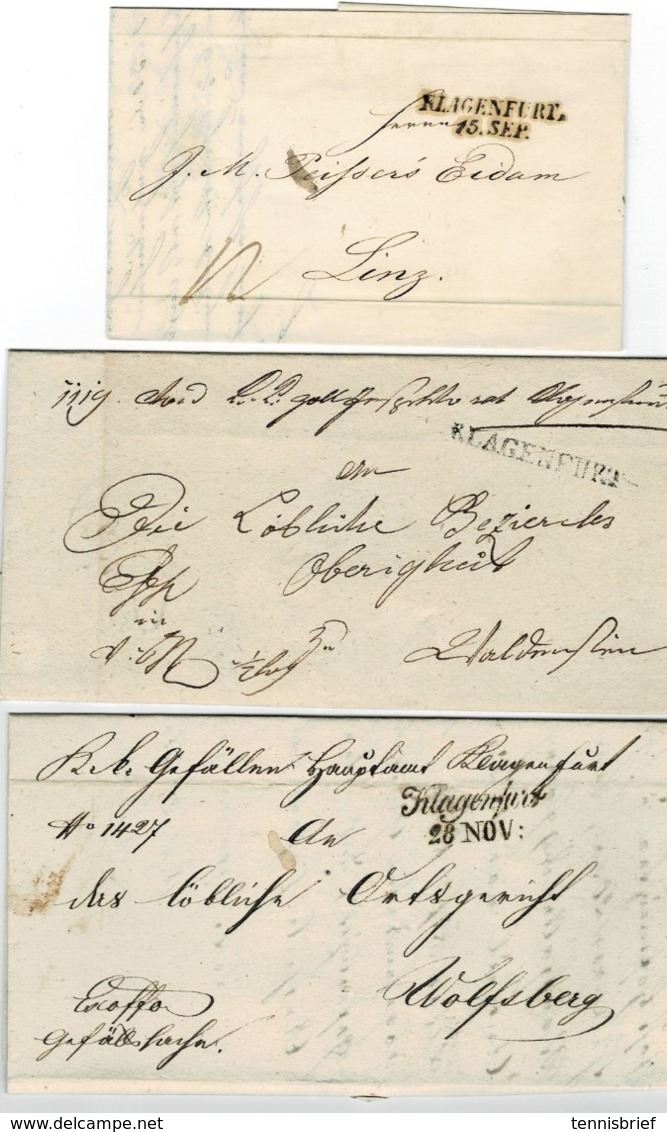 KLAGENFURT.
15. SEP.
Herrn
J. M. Peissers Eidam
Linz.
KLAGENFURT
An
Die Löbliche Bezierks
Oberigkeit
in
Waldenstein
K. k. Gefällen Hauptamt Klagenfurt
Klagenfurt
28 NOV:
No 1427 An
das löbliche Ortsgericht
Wolfsberg
Exoffo
Gefällssache.
tennisbrief